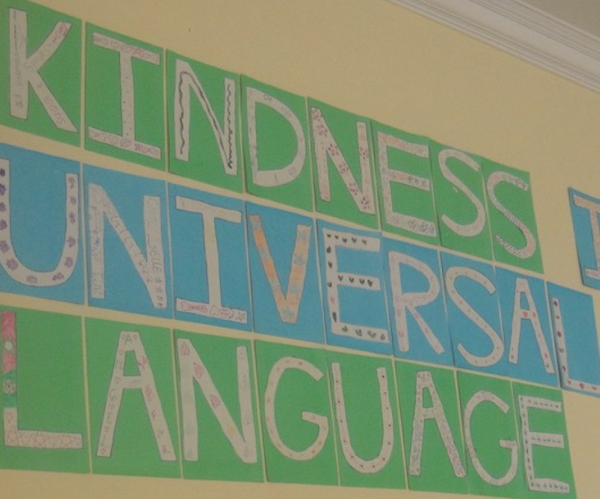 KINDNESS
UNIVERSAL
LANGUAGE